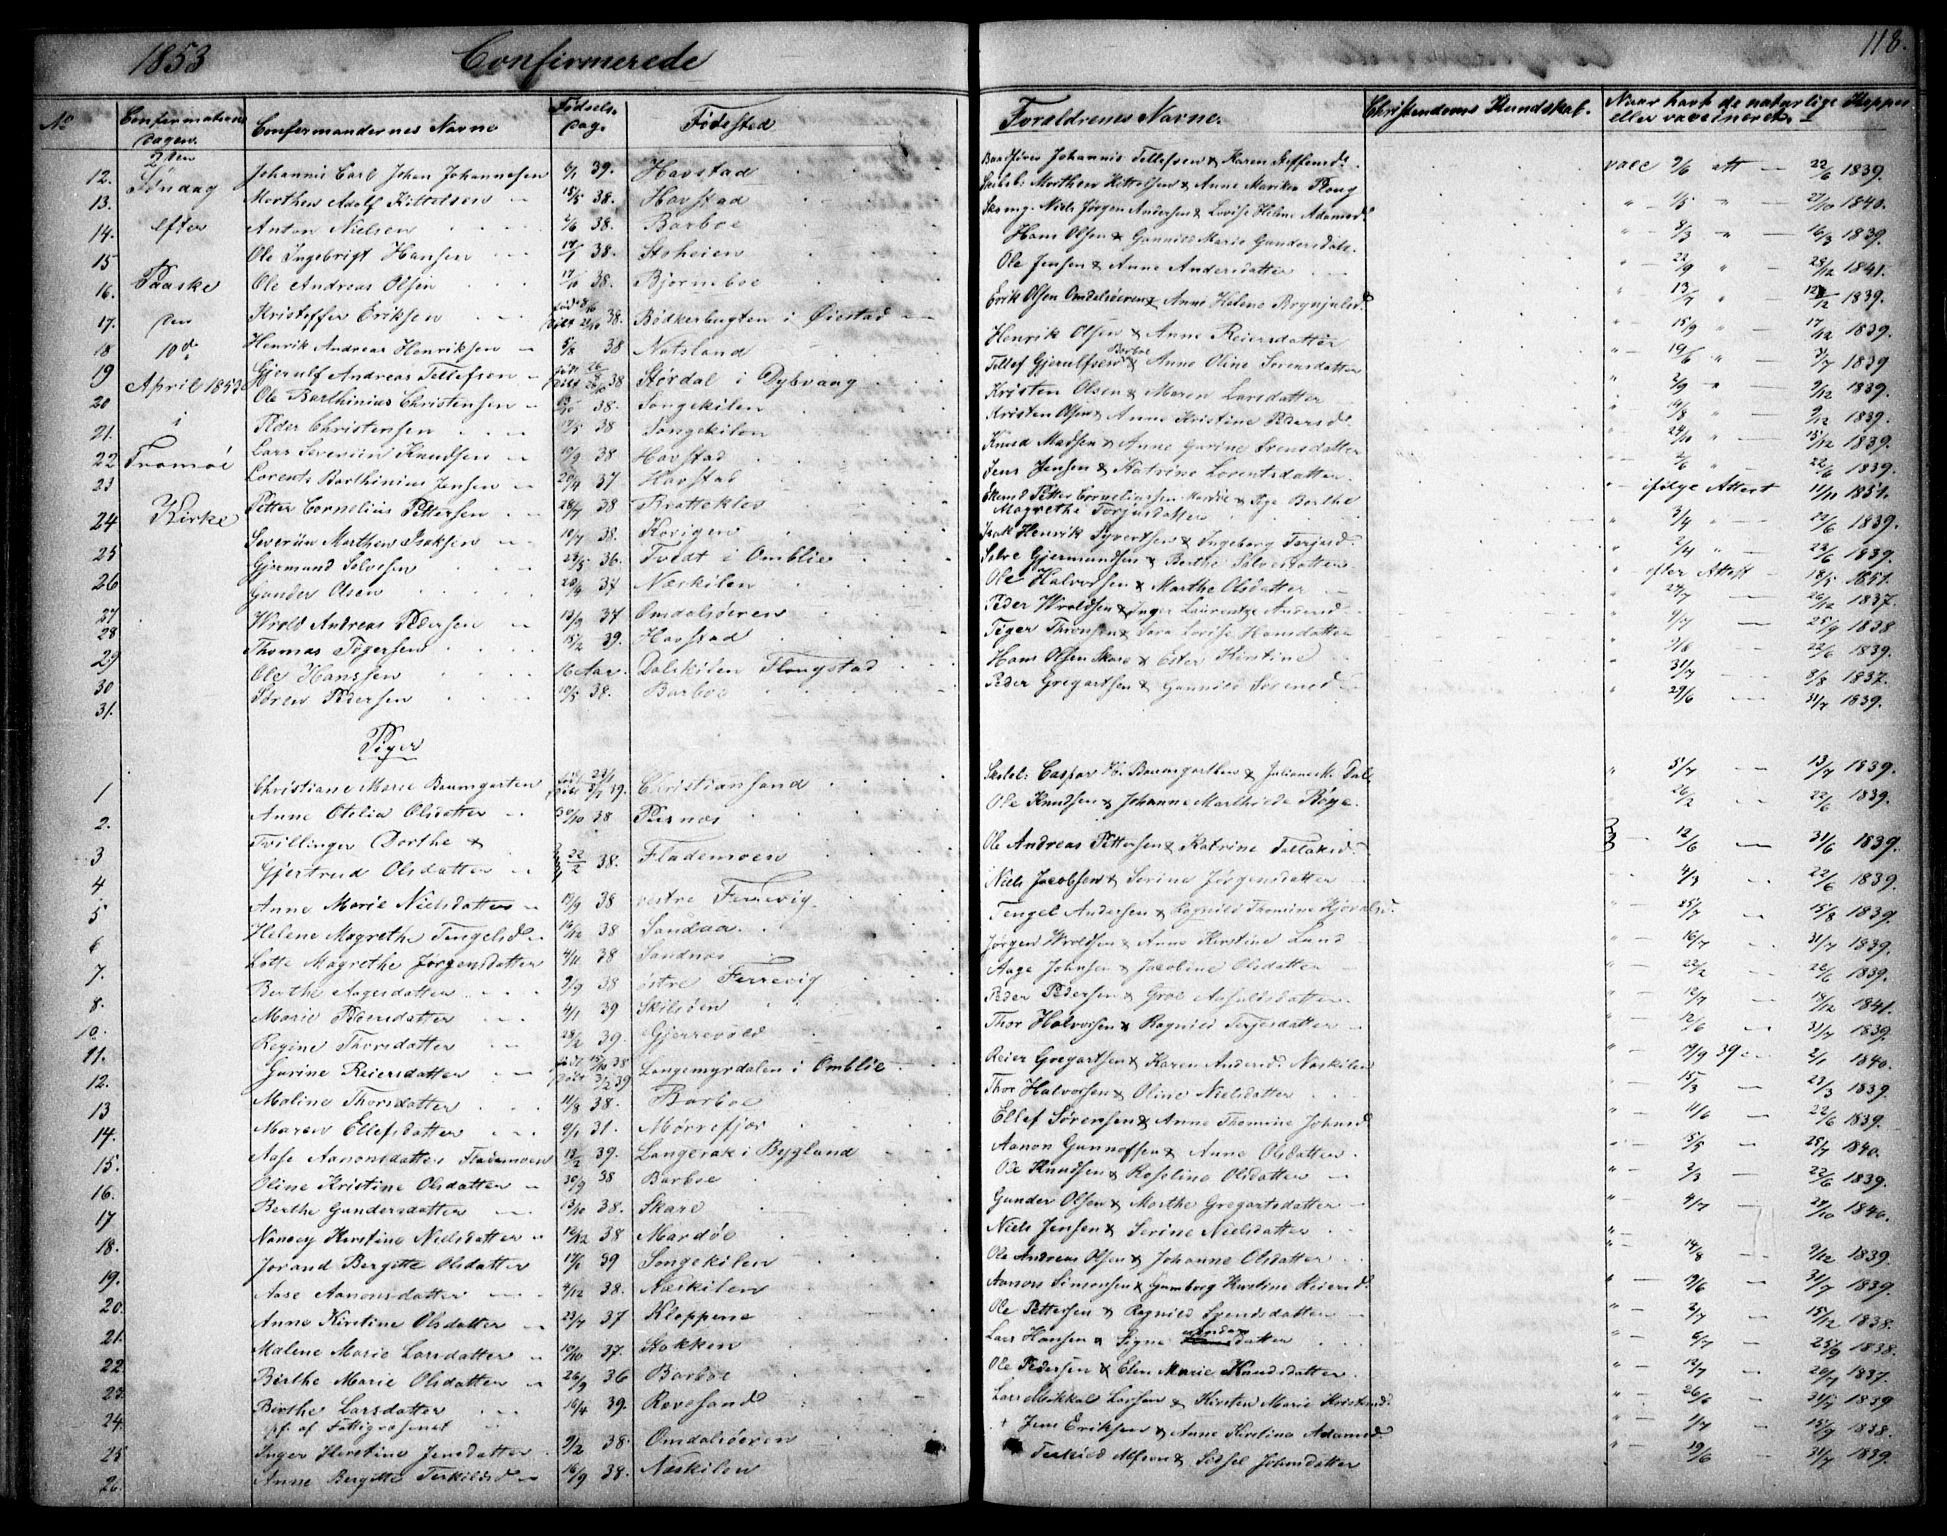 1853 Confirmerede 118.
No Confirmations Dagen. Confirmandernes Navne Fødsels Dag. Fødested Forældrenes Navne. Christendoms Kundskab. Naar havt de naturlige Kopper eller vaccineret.
2den Søndag efter Paaske den 10de April 1853 i Tromøe Kirke
12. Johannis Carl Johan Johannesen 6/1 39. Havstad Johannis Tellefsen & Karen Steffensd. vacc 9/6 att 22/6 1839.
13. Morthen Adolf Kittelsen 15/5 38. Havstad Morthen Kittelsen & Anne Marthea Ploug 1/5 27/10 1840.
14. Anton Nielsen 2/6 38. Barboe Niels Jørgen Andersen & Lovise Helene Adamsd. 8/3 16/3 1839.
15 Ole Ingebrigt Hansen 17/7 38. Stoheien Hans Olsen & Gunnild Marie Gundersdatr. 22/9 28/12 1841.
16. Ole Andreas Olsen 17/10 38. Bjørneboe Ole Jensen & Anne Andersdatter 13/7 12/12 1839.
17. Kristoffer Eriksen 38. Bødkerbugten i Øiestad Erik Olsen Omdalsøeren & Anne Helene Brynjulsd. 15/9 17/12 1839.
18 Henrik Andreas Henriksen 5/8 38 Natsland Henrik Olsen & Anne Reiersdatter 19/6 3/7 1839
19 Gjerulf Andreas Tellefsen 38 Størdal i Dybvaag Tellef Gjerulfsen Barboe & Anne Oline Sørensdatter 2/9 9/12 1839.
20 Ole Barthinius Christensen 38. Songekilen Kristen Olsen & Maren Larsdatter 14/8 9/12 1839.
21. Peder Christensen 12/5 38 Songekilen Kristen Olsen & Anne Kristine Pedersd. 24/10 13/12 1839.
22 Lars Severin Knudsen 10/9 38 Havstad Knud Madsen & Anne Gurine Svensdatter 2/6 22/6 1839.
23 Lorents Barthinius Jensen 20/4 37 Havstad Jens Jensen & Katrine Lorentsdatter ifølge Attest 11/10 1851.
24 Petter Cornelius Pettersen 28/7 38 Bratteklev Petter Corneliussen Mardøe & Age Berthe Magrethe Torjusdatter 3/4 22/6 1839.
25 Severin Morthen Isaksen 10/7 38. Kovigen Isak Henrik Syvertsen & Ingeborg Terjesd. 2/4 22/6 1839.
26 Gjermund Solvesen 23/5 36. Tvedt i Omblie Solve Gjermundsen & Berthe Solvesdatter efter Attest 18/5 1851.
27 Gunder Olsen 20/4 37 Næskilen Ole Halvorsen & Marthe Olsdatter 29/7 26/12 1837.
28 Wrold Andreas Pedersen 13/9 37 Omdalsøeren Peder Wroldsen & Inger Laurentze Andersd. 4/7 25/9 1838
29 Thomas Tøgersen 15/2 39. Havstad Tøger Thronsen & Sara Lovise Hansdatter 2/8 22/6 1839.
30 Ole Hanssen 16 Aar. Dalskilen Flougstad Hans Olsen Skare & Ester Kirstine 31/7 8/8 1837.
31. Søren Pedersen 10/5 38. Barboe Peder Gregartsen & Gunnild Sørensd. 29/6 31/7 1839.
Piger
1 Christiane Marie Baumgarten 39. Christiansand Caspar H. Baumgarthen & Juliane M. Dal 5/7 13/7 1839.
2. Anne Otilia Olsdatter 30/10 38 Pusnæs Ole Knudsen & Johanne Marthiede Bøge 26/2 22/6 1839.
3 Tvillinger Dorthe &
4 Gjertrud Olsdatter 22/2 38. Flademoen Ole Andreas Pettersen & Katrine Tallaksd. 12/6 31/6 1839.
5 Anne Marie Nielsdatter 19/9 38 vestre Færrevig. Niels Jacobsen & Serine Jørgensdatter 4/3 22/6 1839.
6 Helene Magrethe Tengelsd. 16/12 38 Sandaa. Tengel Andersen & Ragnild Thomine Kjøvalsd. 25/7 15/8 1839.
7. Lotte Magrethe Jørgensdatter 4/11 38 Sandnæs Jørgen Wroldsen & Anne Kirstine Lund 16/7 31/7 1839.
8. Berthe Aagesdatter 2/9 38 østre Færrevig Aage Johnsen & Jacobine Olsdatter 22/2 22/6 1839.
Marie Pedersdatter 4/1 39 Skilsøen Peder Pedersen & Groe Asfaldsdatter. 12/7 18/12 1841.
10. Regine Thorsdatter 28/2 39. Gjerrevold Thor Halvorsen & Ragnild Terjesdatter 12/6 31/7 1839.
11. Gurine Reiersdatter Langemyrdalen i Omblie Reier Gregartsen & Karen Andersd. Næskilen 19/9 39 2/1 1840.
12. Maline Thorsdatter 11/8 38. Barboe Thor Halvorsen & Oline Nielsdatter 15/3 23/3 1839.
13 Maren Ellefsdatter 9/1 31. Mørrefjær Ellef Sørensen & Anne Thomine Johnsd. 11/6 22/6 1839.
14. Aase Aanonsdatter Flademoen 13/2 39. Langerak i Bygland Aanon Gunnofsen & Anne Olsdatter 5/5 25/7 1840.
15. Oline Kristine Olsdatter 30/9 38 Barboe Ole Knudsen & Roseline Olsdatter 2/3 22/6 1839.
16. Berthe Gundersdatter 13/10 38. Skare Gunder Olsen & Marthe Gregartsdatter 4/7 27/10 1840.
17 Nancy Kirstine Nielsdatter 12/12 38 Mardøe Niels Jensen & Serine Nielsdatter
18. Jorand Bergitte Olsdatter 17/2 39 Songekilen Ole Andreas Olsen & Johanne Olsdatter 14/8 9/12 1839.
19. Aase Aanonsdatter 4/12 38. Næskilen Aanon Simonsen & Gunborg Kirstine Reiersd. 19/6 31/7 1839.
20. Anne Kirstine Olsdatter 23/7 37 Kloppene Ole Pettersen & Ragnild Svendsdatter 2/7 15/12 1838.
21. Malene Marie Larsdatter 10/10 37. Stokken Lars Hansen & Signe datter 6/7 25/9 1838.
22 Birthe Marie Olsdatter 26/9 36 Barboe Ole Pedersen & Elen Marie Knudsdatter 13/7 20/7 1837.
23. Birthe Larsdatter 16/4 39. Revesand Lars Mikkal Larsen & Kirsten Marie Kristensd. 26/6 31/7 1839
24. pf. af Fattigvæsenet
25 Inger Kirstine Jensdatter 9/2 38. Omdalsøeren Jens Eriksen & Anne Kirstine Adamsd. 2/7 15/9 1838.
26. Anne Bergitte Terkildsd. 16/9 38. Næskilen Terkild Alfsen & Sidsel Johnsdatter 19/6 31/7 1839.